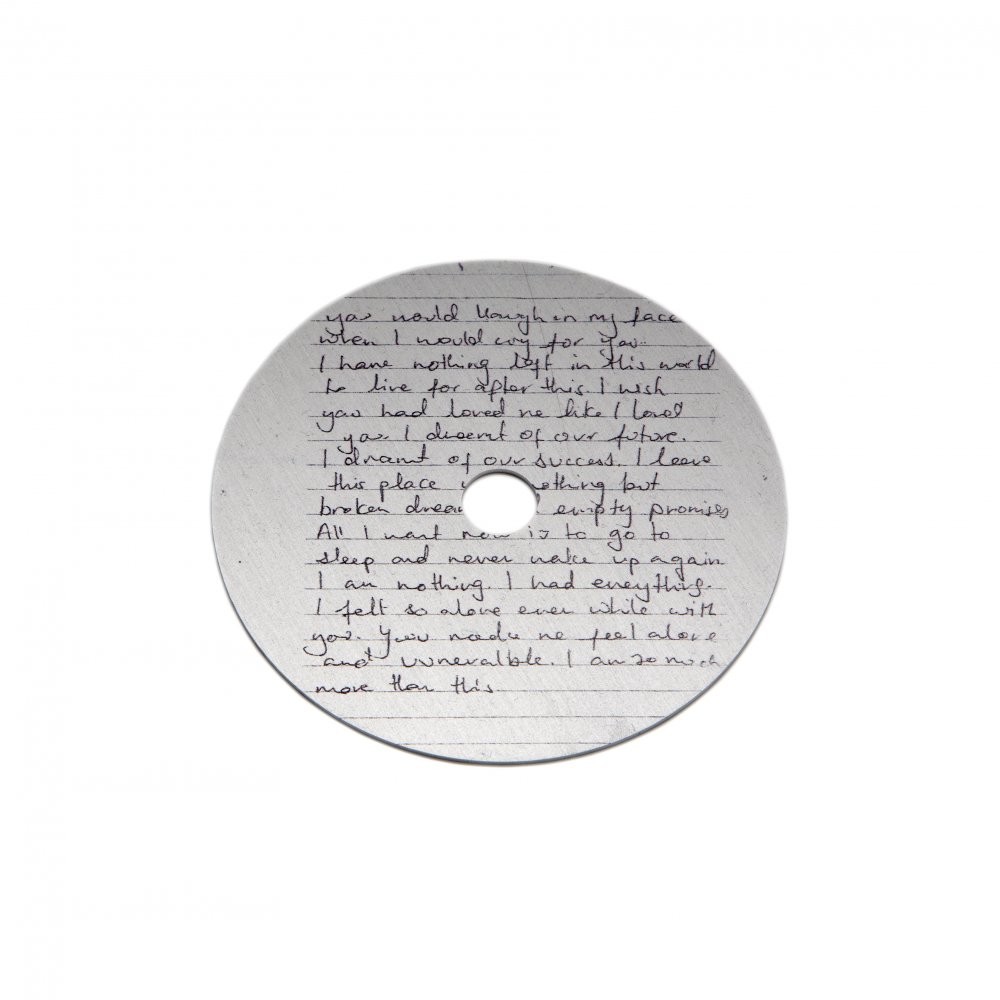 you would laugh in my face
when I would cry for you..
I have nothing left in this world
to live for after this. I wish
you had loved me like I loved
you. I dreamt of our future.
I dreamt of our success. I leave
this place othing but
broken drea empty promises
All I want now is to go to
sleep and never wake up again.
I am nothing. I had everything.
I felt so alone even while with
you. You made me feel alone
and vuneralble. I am so much
more than this